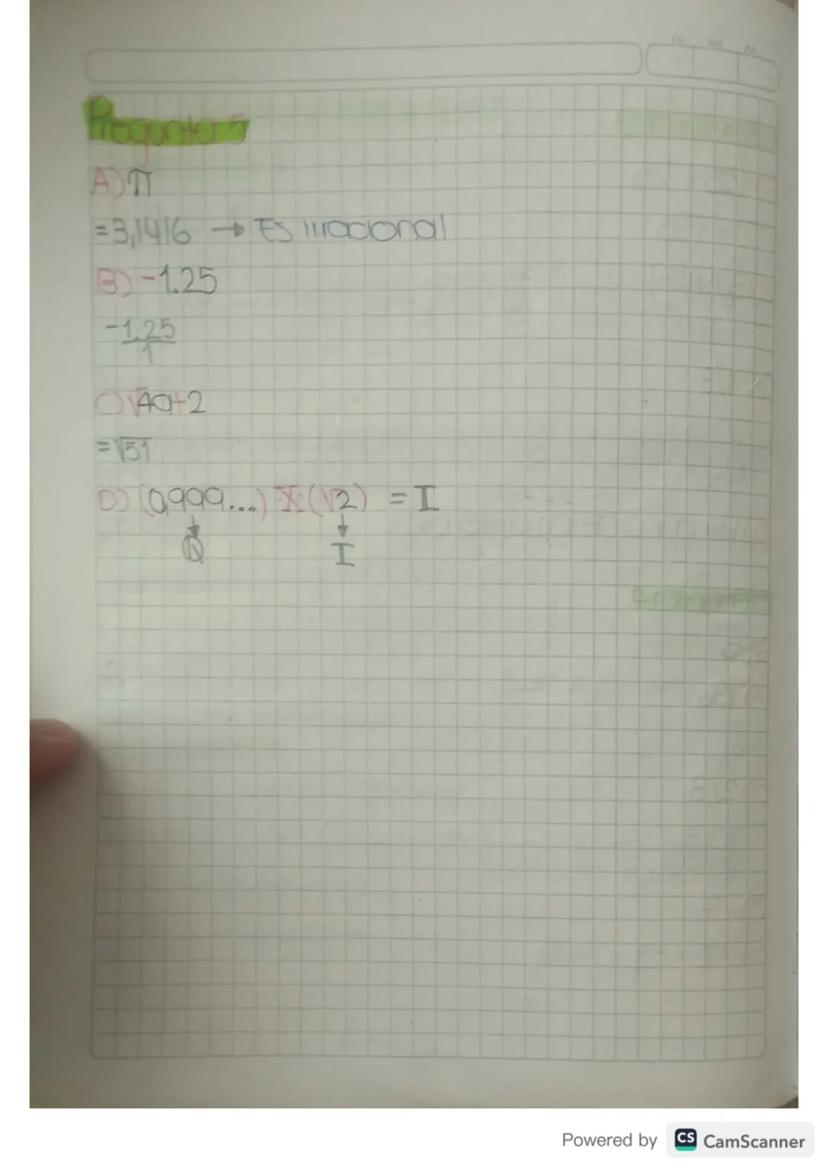 Pregunta 5
A) π
=3,1416 → Es irracional
B) -1.25
-1.25
1
C) √49+2
=√51
D) (0,999...) X (√2) = I
Q I
Powered by CS CamScanner